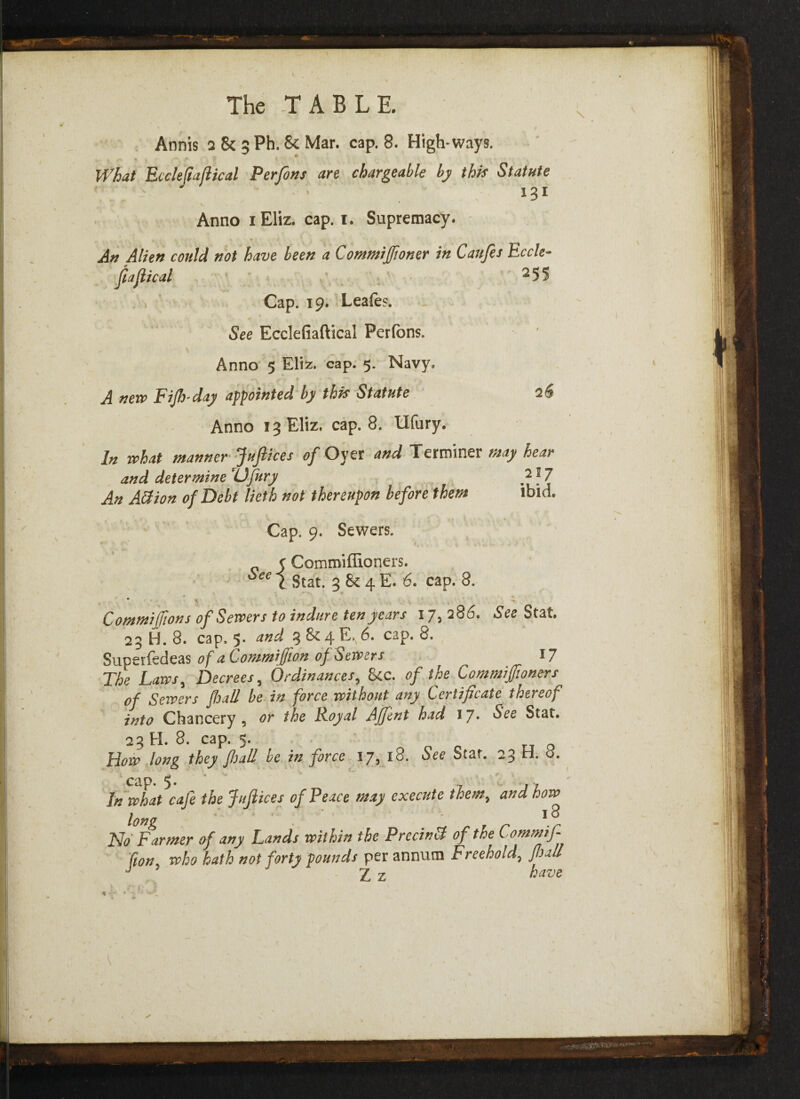 The TABLE.
Annis 2 & 3 Ph. & Mar. cap. 8. High-ways.
What Eccleſiaſtical Perſons are chargeable by this Statute
131
Anno 1 Eliz. cap. 1. Supremacy.
An Alien could not have been a Commiſſioner in Cauſes Eccle-
ſiaſtical 255
Cap. 19. Leaſes.
See Eccleſiaſtical Perſons.
Anno 5 Eliz. cap. 5. Navy.
A new Fiſh-day appointed by this Statute 26
Anno 13 Eliz. cap. 8. Uſury.
In what manner Juſtices of Oyer and Terminer may hear
and determine Uſury 217
An Action of Debt lieth not thereupon before them ibid.
Cap. 9. Sewers.
See { Commiſſioners.
Stat. 3 & 4 E. 6. cap. 8.
Commiſſions of Sewers to indure ten years 17, 286. See Stat.
23 H. 8. cap. 5. and 3 & 4 E. 6. cap. 8.
Superſedeas of a Commiſſion of Sewers 17
The Laws, Decrees, Ordinances, &c. of the Commiſſioners
of Sewers ſhall be in force without any Certificate thereof
into Chancery, or the Royal Aſſent had 17. See Stat.
23 H. 8. cap. 5.
How long they ſhall be in force 17, 18. See Stat. 23 H. 8.
cap. 5.
In what caſe the Juſtices of Peace may execute them, and how
long 18
No Farmer of any Lands within the Precinct of the Commiſ-
ſion, who hath not forty pounds per annum Freehold, ſhall
Z z have